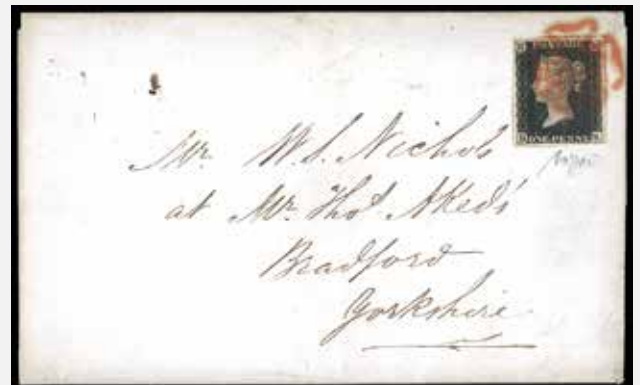 POSTAGE
ONE PENNY
Mr. W. S. Nichols
at Mr. Thos. Akeds'
Bradford
Yorkshire